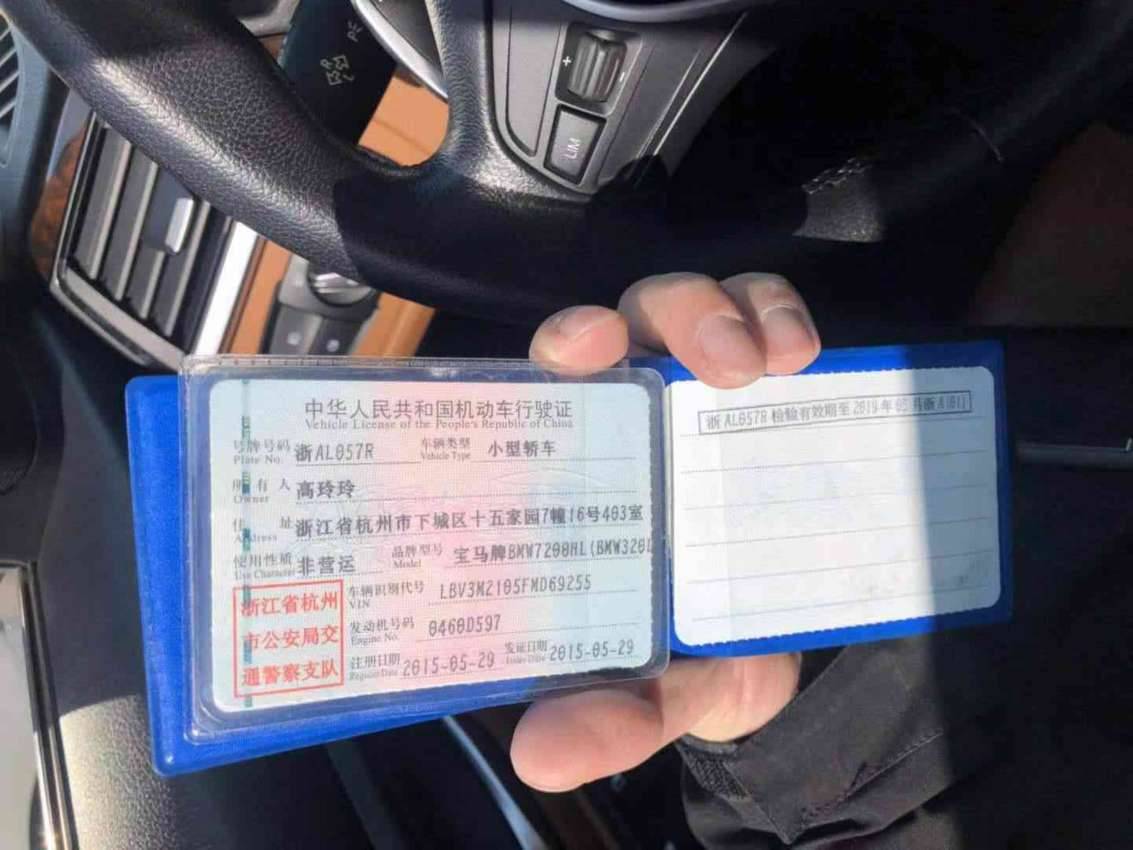 LIM
中华人民共和国机动车行驶证
Vehicle License of the People's Republic of China
号牌号码 浙AL057R 车辆类型 小型轿车
Plate No. Vehicle Type
所有人 高玲玲
Owner
住址 浙江省杭州市下城区十五家园7幢16号403室
Address
使用性质 非营运 品牌型号 宝马牌BMW7200HL(BMW320L
Use Character Model
浙江省杭州
市公安局交
通警察支队
车辆识别代号 LBV3M2105FMD69255
VIN
发动机号码 0460D597
Engine No.
注册日期 2015-05-29 发证日期 2015-05-29
Register Date Issue Date
浙AL057R 检验有效期至 2019年05月浙A(01)